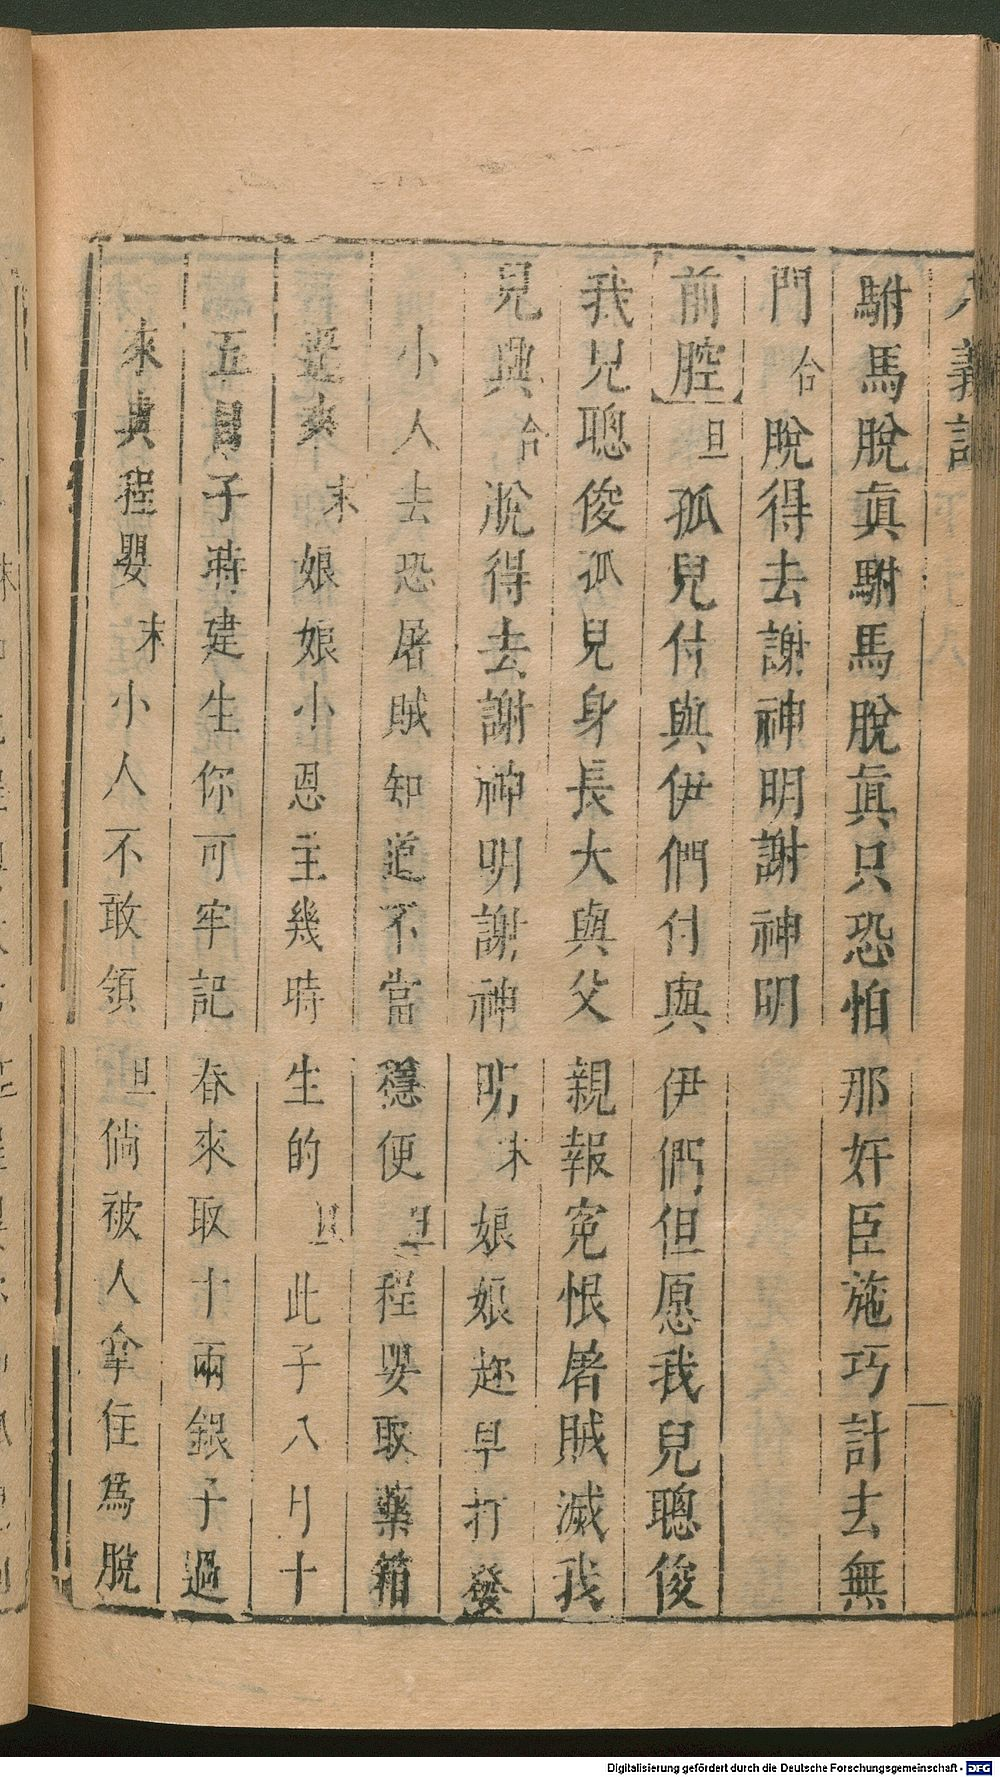 八義記
駙馬脫眞駙馬脫眞只恐怕那奸臣施巧計去無
門合脫得去謝神明謝神明
前腔旦孤兒付與伊們付與伊們但愿我兒聰俊
我兒聰俊孤兒身長大與父親報寃恨屠賊滅我
兒興合脫得去謝神明謝神明末娘娘趂早打發
小人去恐屠賊知道不當穩便旦程嬰取藥箱
過來末娘娘小恩主幾時生的旦此子八月十
五日子時建生你可牢記春來取十兩銀子過
來與程嬰末小人不敢領旦倘被人拿住為脫
Digitalisierung gefördert durch die Deutsche Forschungsgemeinschaft - DFG